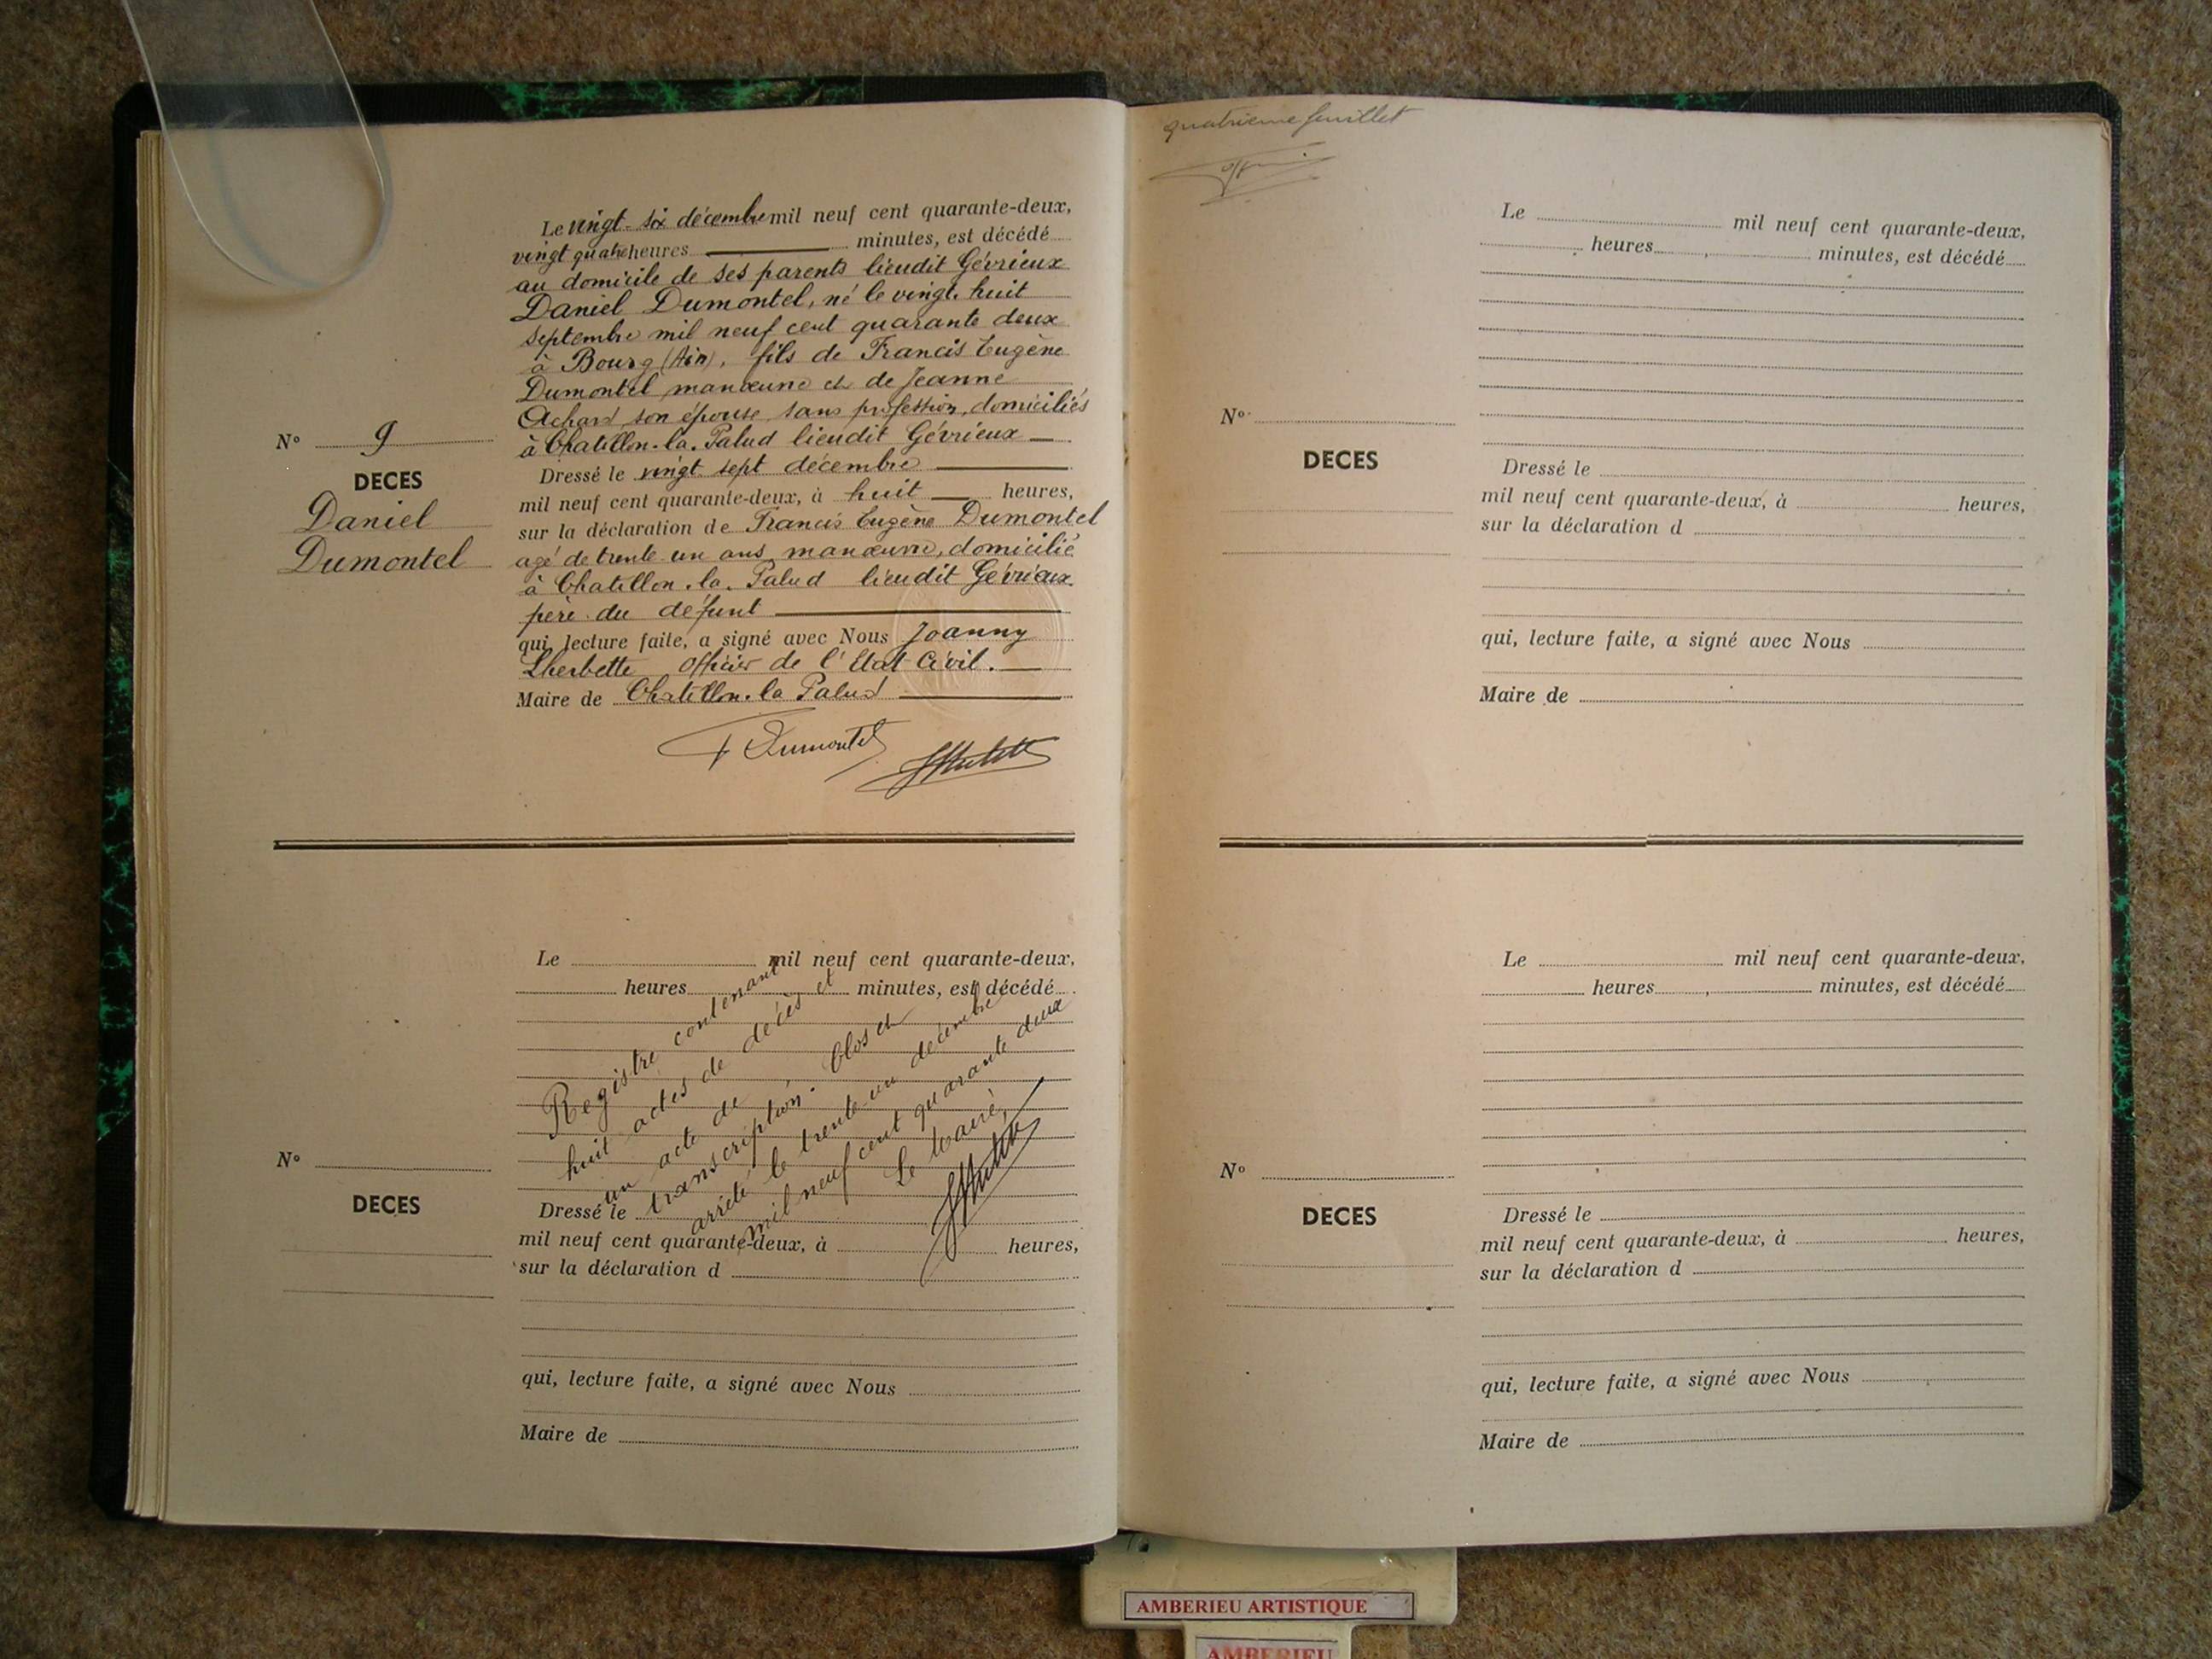 Le vingt-six décembre mil neuf cent quarante-deux,
vingt quatre heures minutes, est décédé
au domicile de ses parents lieudit Gévrieux
Daniel Dumontel, né le vingt-huit
septembre mil neuf cent quarante deux
à Bourg (Ain), fils de Francis Eugène
Dumontel manœuvre et de Jeanne
Achard son épouse, sans profession, domiciliés
à Chatillon-la-Palud lieudit Gévrieux
N° 9
DECES
Daniel
Dumontel
Dressé le vingt sept décembre
mil neuf cent quarante-deux, à huit heures,
sur la déclaration de Francis Eugène Dumontel
agé de trente-un ans, manœuvre, domicilié
à Chatillon-la-Palud lieudit Gévrieux
père du défunt
qui, lecture faite, a signé avec Nous Joanny
Lherbette Officier de l'Etat Civil.
Maire de Chatillon-la Palud
F Dumontel
Le mil neuf cent quarante-deux,
heures minutes, est décédé
Registre contenant
huit actes de décès et
un acte de
transcription. Clos et
arrêté le trente-un décembre
mil neuf cent quarante deux
Le Maire,
N°
DECES
Dressé le
mil neuf cent quarante-deux, à heures,
sur la déclaration d
qui, lecture faite, a signé avec Nous
Maire de
quatrième feuillet
Le mil neuf cent quarante-deux,
heures minutes, est décédé
N°
DECES
Dressé le
mil neuf cent quarante-deux, à heures,
sur la déclaration d
qui, lecture faite, a signé avec Nous
Maire de
Le mil neuf cent quarante-deux,
heures minutes, est décédé
N°
DECES
Dressé le
mil neuf cent quarante-deux, à heures,
sur la déclaration d
qui, lecture faite, a signé avec Nous
Maire de
AMBERIEU ARTISTIQUE
AMBERIEU